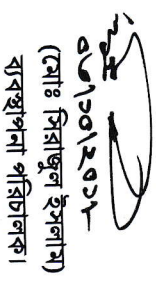 ০৬/১০/২০১৮
(মোঃ সিরাজুল ইসলাম)
ব্যবস্থাপনা পরিচালক।